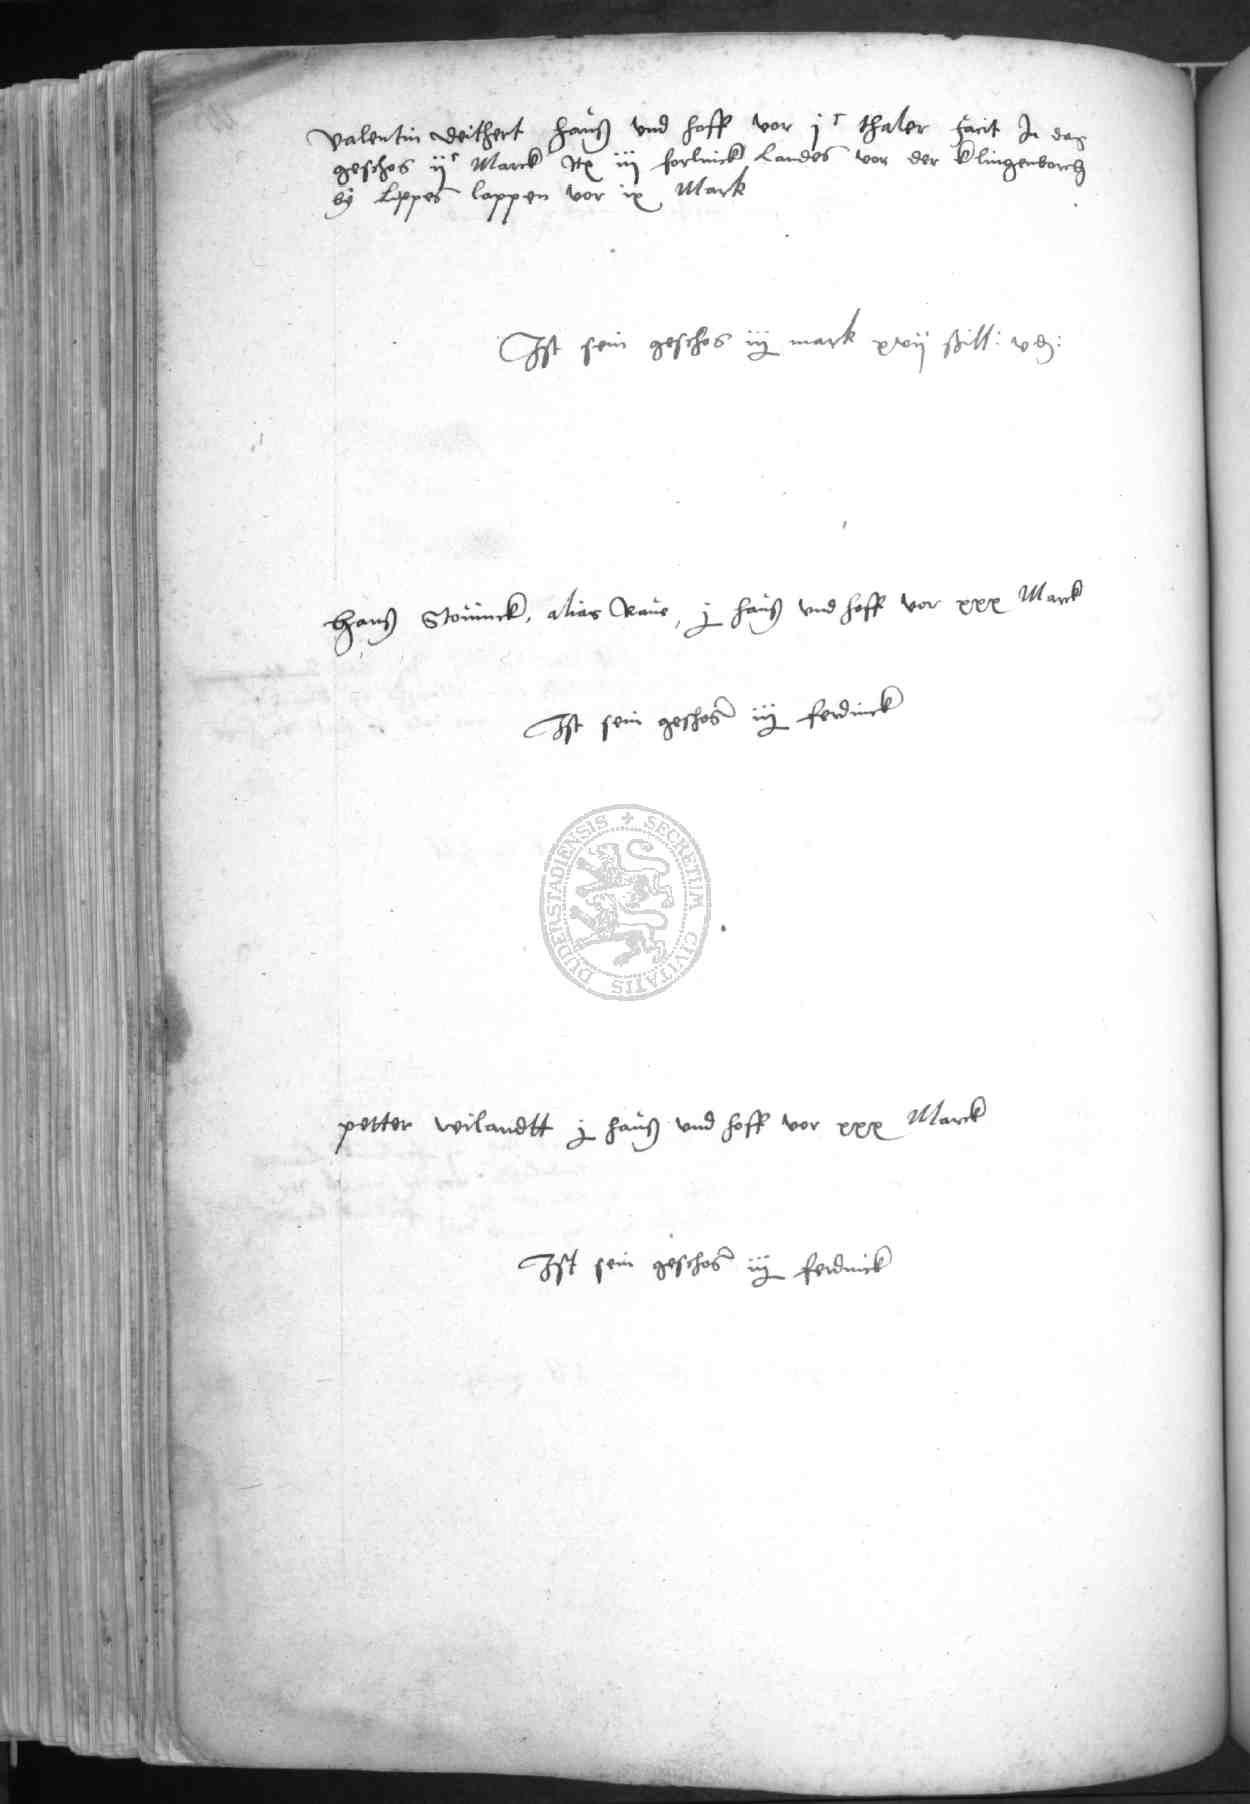 Valentin Deithert hauß vnd hoff vor jᶜ thaler facit In daß
geschos ijᶜ Marck Itē iij forlinck Landes vor der Klingenborch
by Lippes lappen vor ix Mark
Ist sein geschos iij mark xvij ßill: v ₰:
Hanß Stouinck, alias Raüe, j hauß vnd hoff vor xxx Marck
Ist sein geschos iij ferdinck
DUDERSTADIENSIS + SECRETUM CIVITATIS
petter wilandtt j hauß vnd hoff vor xxx Marck
Ist sein geschos iij ferdinck